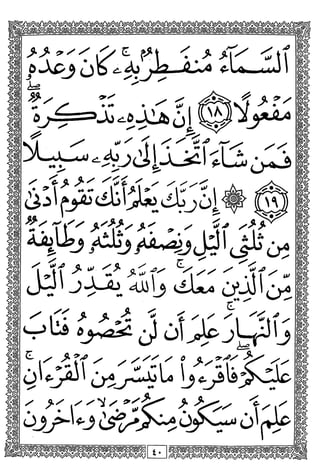 ٱلسَّمَآءُ مُنفَطِرُۢ بِهِۦۚ كَانَ وَعْدُهُۥ
مَفْعُولًا ١٨ إِنَّ هَٰذِهِۦ تَذْكِرَةٌۖ
فَمَن شَآءَ ٱتَّخَذَ إِلَىٰ رَبِّهِۦ سَبِيلًا
١٩ ۞ إِنَّ رَبَّكَ يَعْلَمُ أَنَّكَ تَقُومُ أَدْنَىٰ
مِن ثُلُثَىِ ٱلَّيْلِ وَنِصْفَهُۥ وَثُلُثَهُۥ وَطَآئِفَةٌ
مِّنَ ٱلَّذِينَ مَعَكَۚ وَٱللَّهُ يُقَدِّرُ ٱلَّيْلَ
وَٱلنَّهَارَۚ عَلِمَ أَن لَّن تُحْصُوهُ فَتَابَ
عَلَيْكُمْۖ فَٱقْرَءُوا۟ مَا تَيَسَّرَ مِنَ ٱلْقُرْءَانِۚ
عَلِمَ أَن سَيَكُونُ مِنكُم مَّرْضَىٰۙ وَءَاخَرُونَ
٤٠